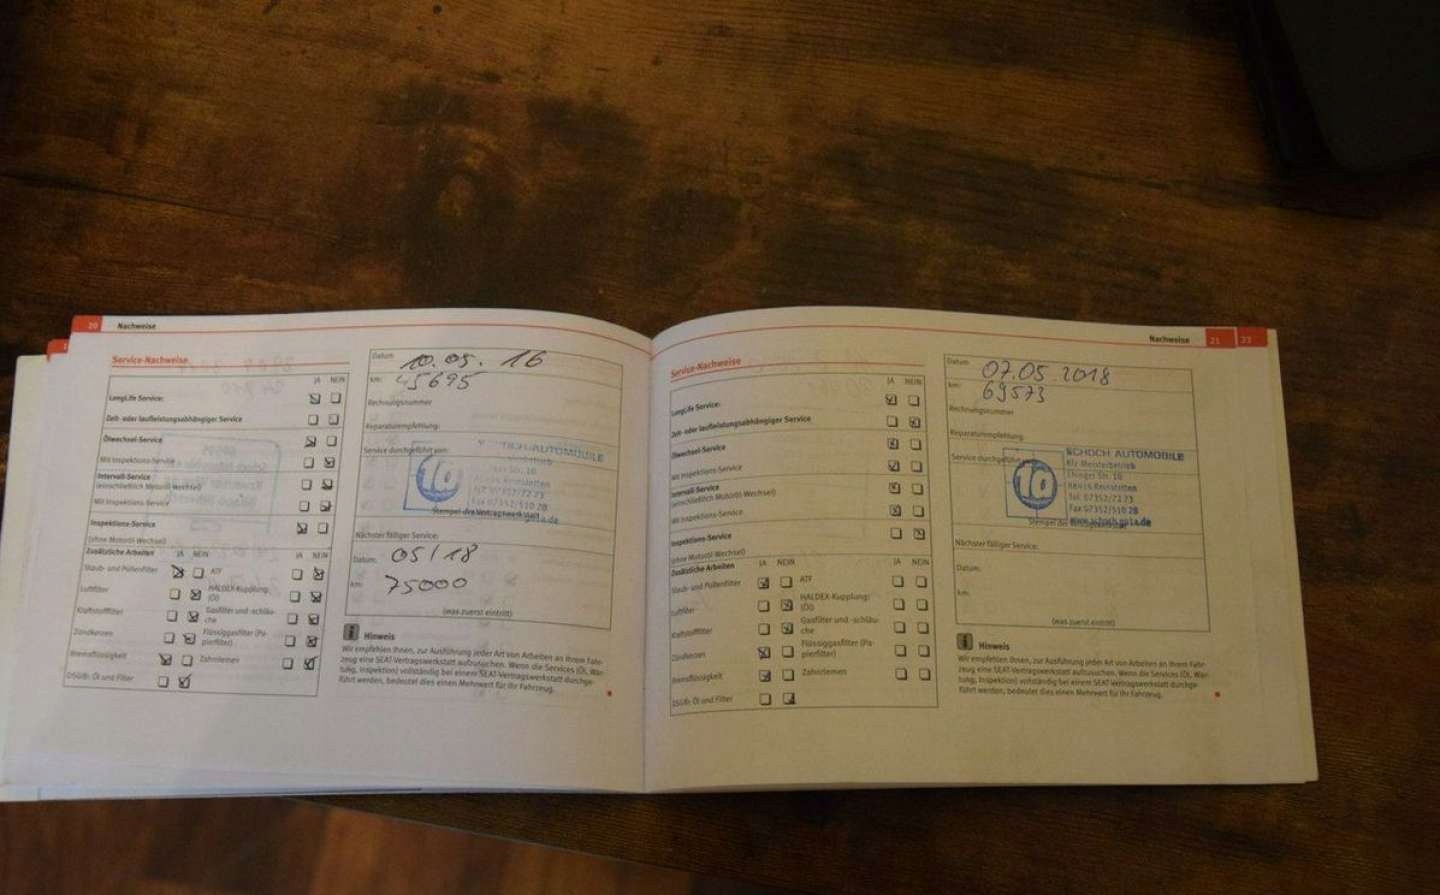 20 Nachweise
Service-Nachweise
JA NEIN
LongLife Service:
Zeit- oder laufleistungsabhängiger Service
Ölwechsel-Service
Mit Inspektions-Service
Intervall-Service
(einschließlich Motoröl-Wechsel)
Mit Inspektions-Service
Inspektions-Service
(ohne Motoröl-Wechsel)
Zusätzliche Arbeiten JA NEIN JA NEIN
Staub- und Pollenfilter ATF
Luftfilter HALDEX-Kupplung:
(Öl)
Kraftstofffilter Gasfilter und -schläu-
che
Zündkerzen Flüssiggasfilter (Pa-
pierfilter)
Bremsflüssigkeit Zahnriemen
DSG®: Öl und Filter
Datum: 10.05.16
km: 45695
Rechnungsnummer
Reparaturempfehlung:
Service durchgeführt von:
AUTOMOBILE
10
Fax 07352/510 28
Stempel des Vertragswerkstatt
Nächster fälliger Service:
Datum: 05/18
km: 75000
(was zuerst eintritt)
Hinweis
Wir empfehlen Ihnen, zur Ausführung jeder Art von Arbeiten an Ihrem Fahr-
zeug eine SEAT-Vertragswerkstatt aufzusuchen. Wenn die Services (Öl, War-
tung, Inspektion) vollständig bei einem SEAT-Vertragswerkstatt durchge-
führt werden, bedeutet dies einen Mehrwert für Ihr Fahrzeug.
Nachweise 21 23
Service-Nachweise
JA NEIN
LongLife Service:
Zeit- oder laufleistungsabhängiger Service
Ölwechsel-Service
Mit Inspektions-Service
Intervall-Service
(einschließlich Motoröl-Wechsel)
Mit Inspektions-Service
Inspektions-Service
(ohne Motoröl-Wechsel)
Zusätzliche Arbeiten JA NEIN JA NEIN
Staub- und Pollenfilter ATF
Luftfilter HALDEX-Kupplung:
(Öl)
Kraftstofffilter Gasfilter und -schläu-
che
Zündkerzen Flüssiggasfilter (Pa-
pierfilter)
Bremsflüssigkeit Zahnriemen
DSG®: Öl und Filter
Datum: 07.05.2018
km: 69573
Rechnungsnummer
Reparaturempfehlung:
Service durchgeführt
10
SCHOCH AUTOMOBILE
Kfz-Meisterbetrieb
Ehinger Str. 10
Reinstetten
Tel. 07352/72 73
Fax 07352/510 28
Stempel des
Nächster fälliger Service:
Datum:
km:
(was zuerst eintritt)
Hinweis
Wir empfehlen Ihnen, zur Ausführung jeder Art von Arbeiten an Ihrem Fahr-
zeug eine SEAT-Vertragswerkstatt aufzusuchen. Wenn die Services (Öl, War-
tung, Inspektion) vollständig bei einem SEAT-Vertragswerkstatt durchge-
führt werden, bedeutet dies einen Mehrwert für Ihr Fahrzeug.